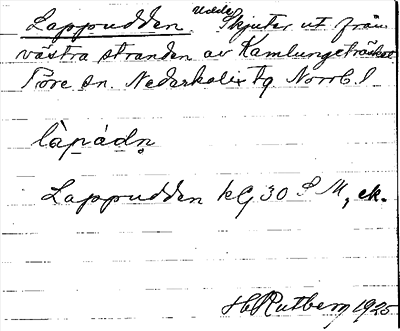 Lappudden. Udde. Skjuter ut från
västra stranden av Kamlungeträsket
Töre sn. Nederkalix tg Norrb. l
lapàdn
Lappudden kG 30 S M, ek.
H Rutberg 1925